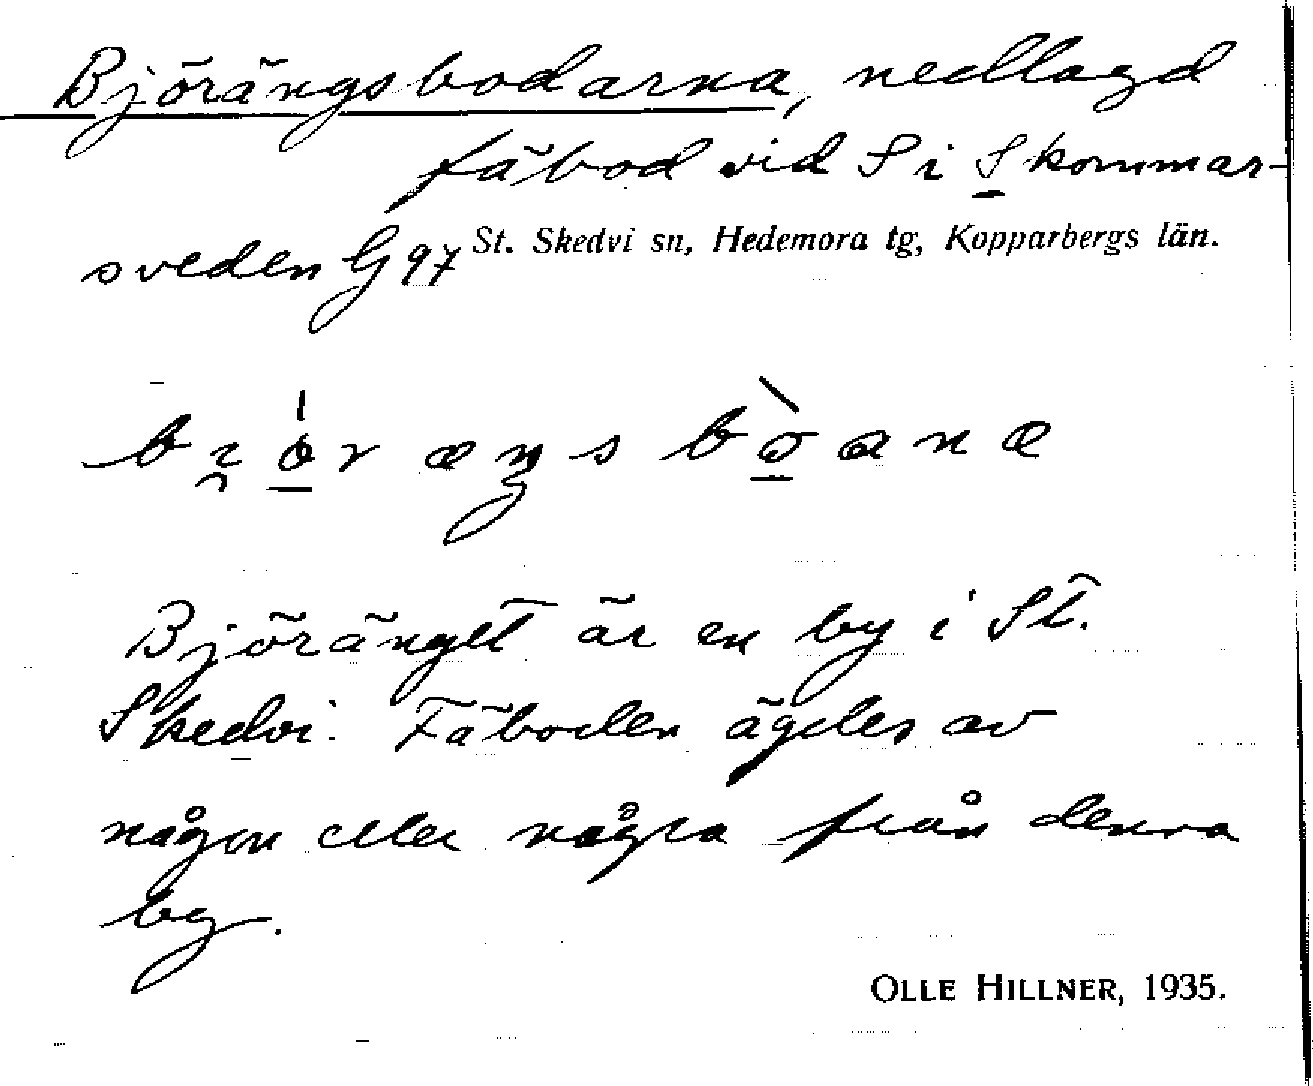 Björängsbodarna, nedlagd
fäbod vid S i Skommar-
sveden G 97 St. Skedvi sn, Hedemora tg, Kopparbergs län.
Björänget är en by i St.
Skedvi. Fäboden ägdes av
någon eller några från denna
by.
OLLE HILLNER, 1935.